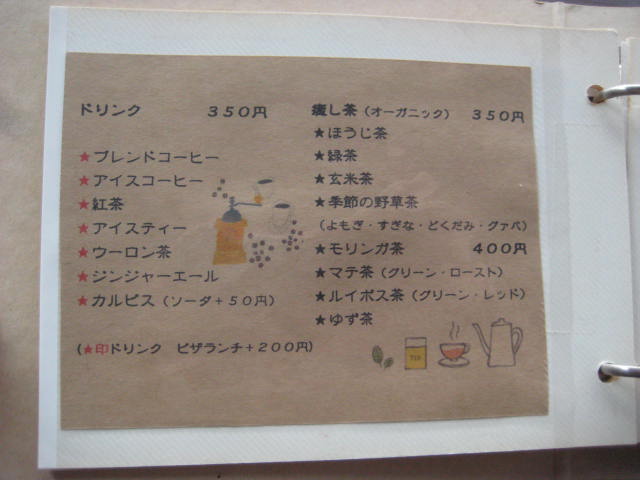 ドリンク　350円
★ブレンドコーヒー
★アイスコーヒー
★紅茶
★アイスティー
★ウーロン茶
★ジンジャーエール
★カルピス（ソーダ+50円）
（★印ドリンク　ピザランチ+200円）
癒し茶（オーガニック）　350円
★ほうじ茶
★緑茶
★玄米茶
★季節の野草茶
（よもぎ・すぎな・どくだみ・グァバ）
★モリンガ茶　400円
★マテ茶（グリーン・ロースト）
★ルイボス茶（グリーン・レッド）
★ゆず茶
TEA